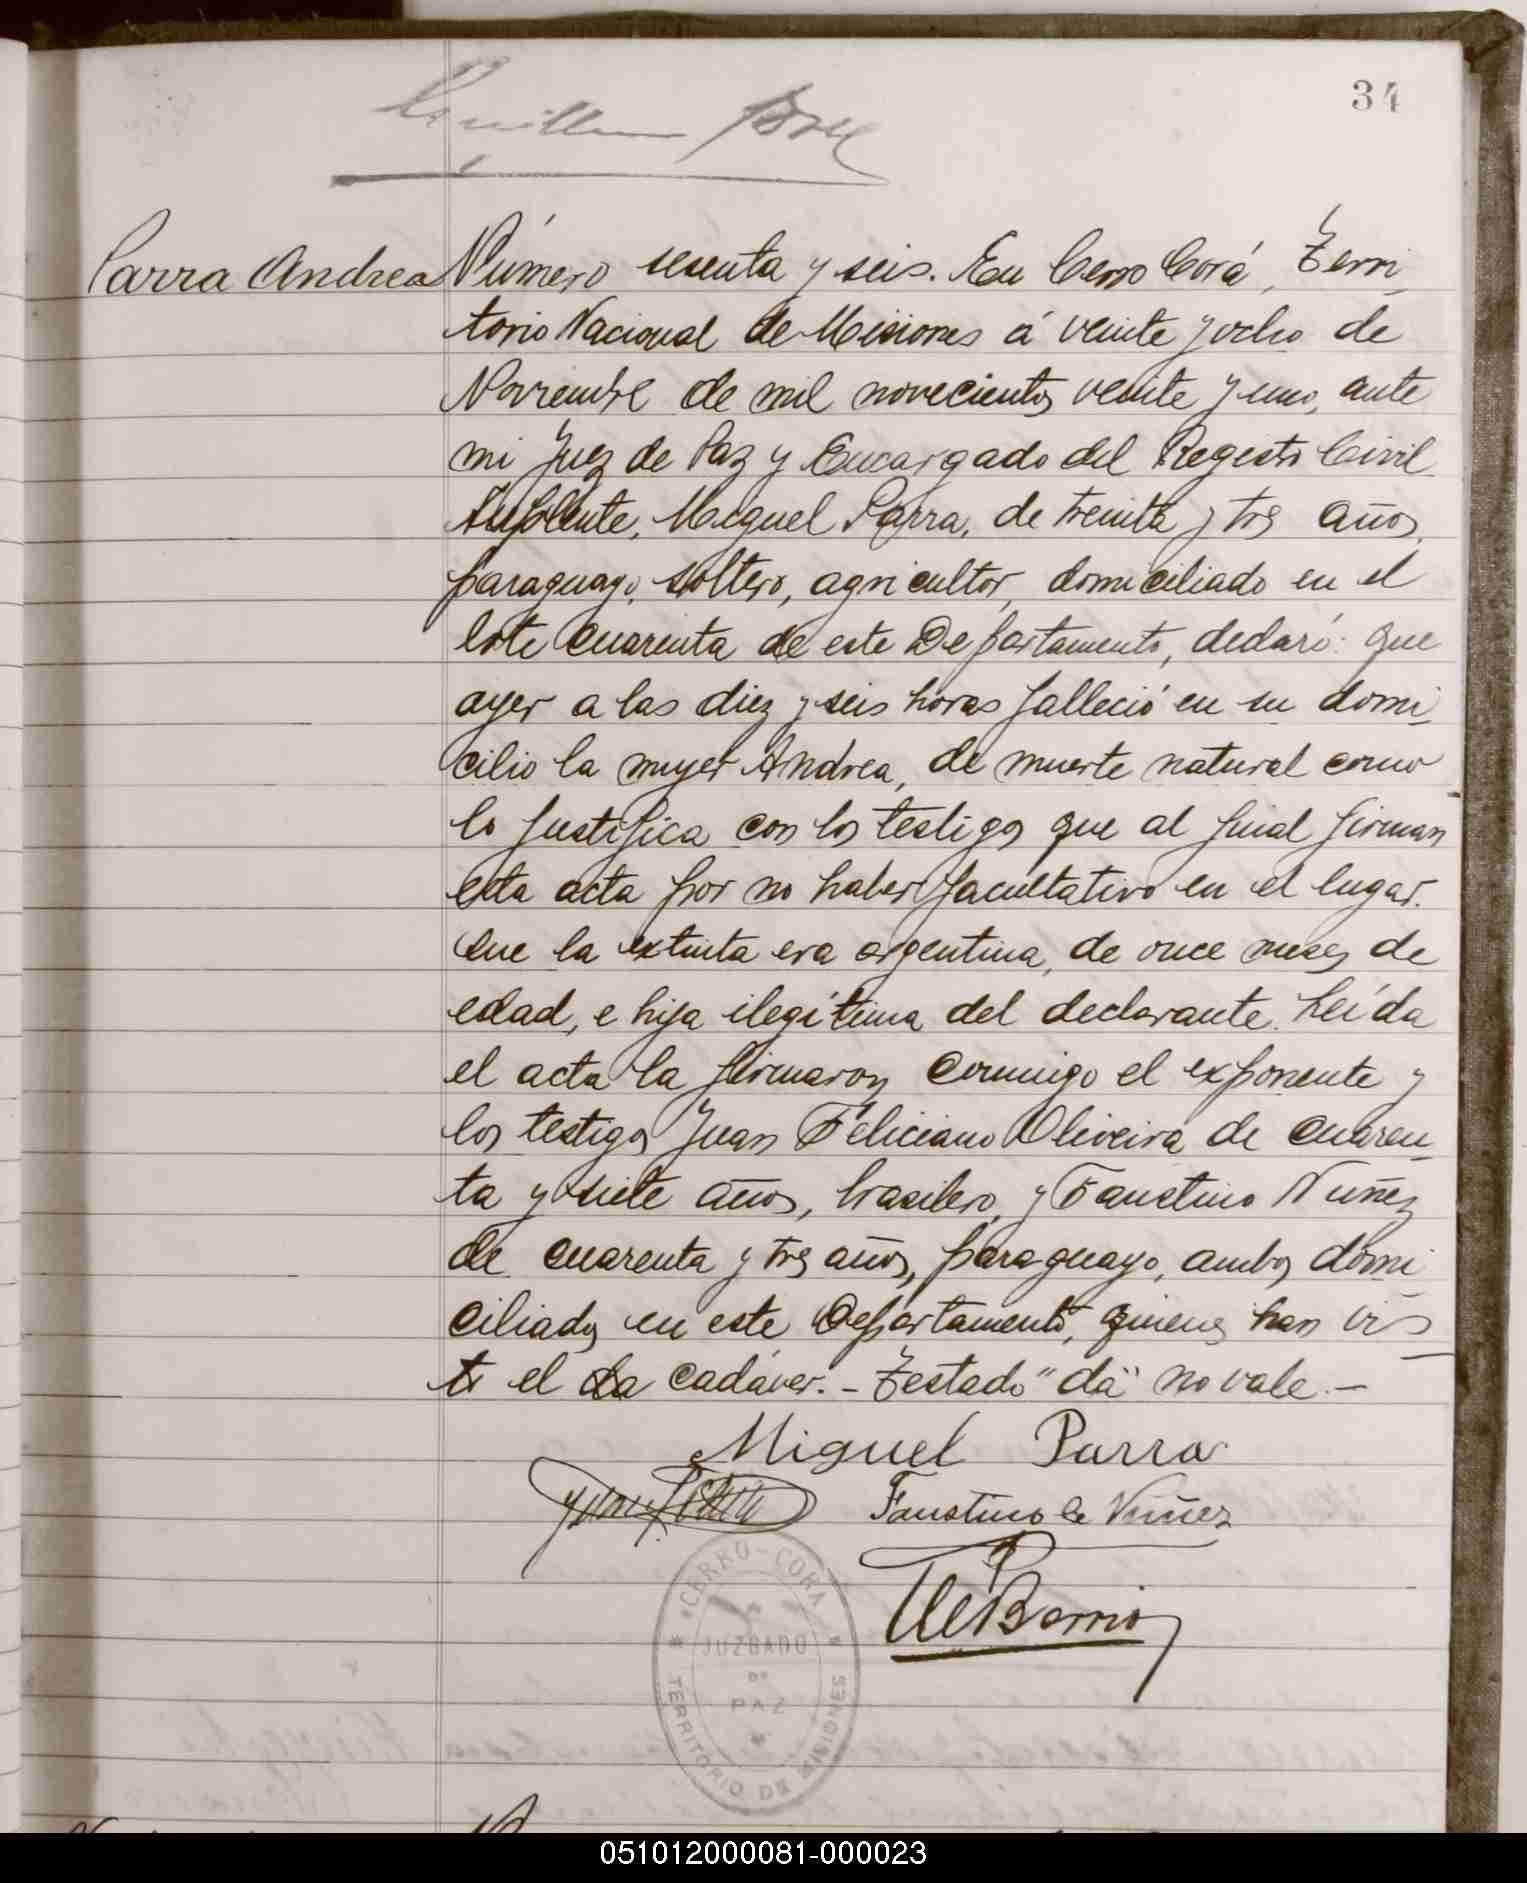 34
Parra Andrea
Número sesenta y seis. En Cerro Corá, Terri-
torio Nacional de Misiones á veinte y ocho de
Noviembre de mil novecientos veinte y uno, ante
mi Juez de Paz y Encargado del Registro Civil
Suplente, Miguel Parra, de treinta y tres años,
paraguayo, soltero, agricultor, domiciliado en el
lote cuarenta de este Departamento, declaró: que
ayer a las diez y seis horas falleció en su domi-
cilio la mujer Andrea, de muerte natural como
lo justifica con los testigos que al final firman
esta acta por no haber facultativo en el lugar.
Que la extinta era argentina, de once meses de
edad, e hija ilegítima del declarante. Leída
el acta la firmaron conmigo el exponente y
los testigos Juan Feliciano Oliveira de cuaren-
ta y siete años, brasilero, y Faustino Nuñez
de cuarenta y tres años, paraguayo, ambos domi
ciliados en este Departamento, quienes han vis-
to el da cadáver. - Testado "da" no vale. -
Miguel Parra
Faustino C Nuñez
CERRO-CORA
JUZGADO
DE
PAZ
TERRITORIO DE MISIONES
051012000081-000023